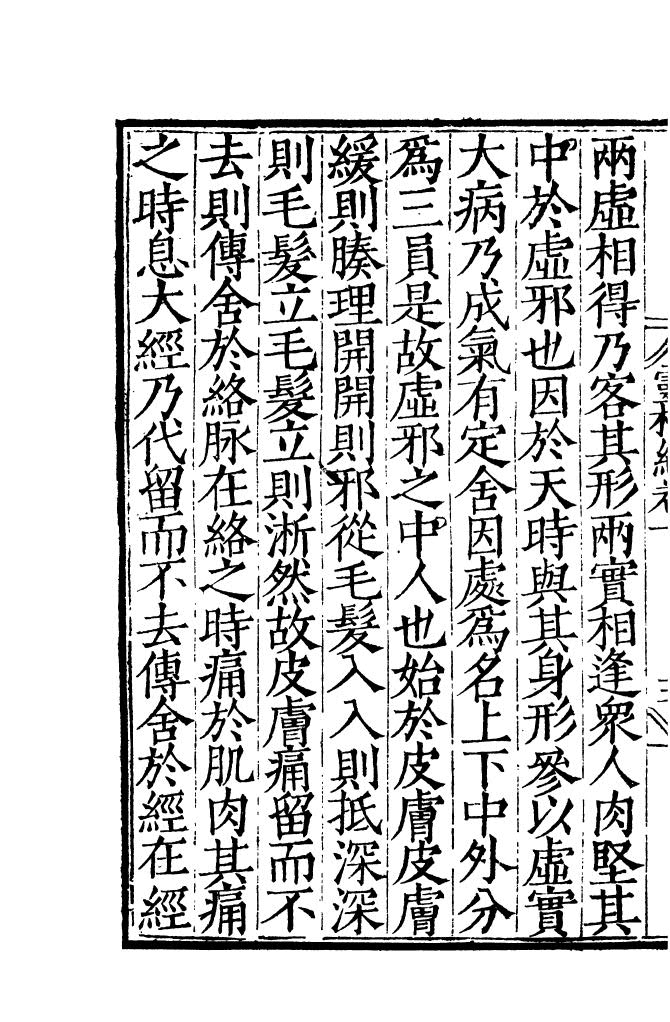 兩虛相得乃客其形兩實相逢衆人肉堅其
中於虛邪也因於天時與其身形參以虛實
大病乃成氣有定舍因處爲名上下中外分
爲三員是故虛邪之中人也始於皮膚皮膚
緩則腠理開開則邪從毛髮入入則抵深深
則毛髮立毛髮立則淅然故皮膚痛留而不
去則傳舍於絡脉在絡之時痛於肌肉其痛
之時息大經乃代留而不去傳舍於經在經